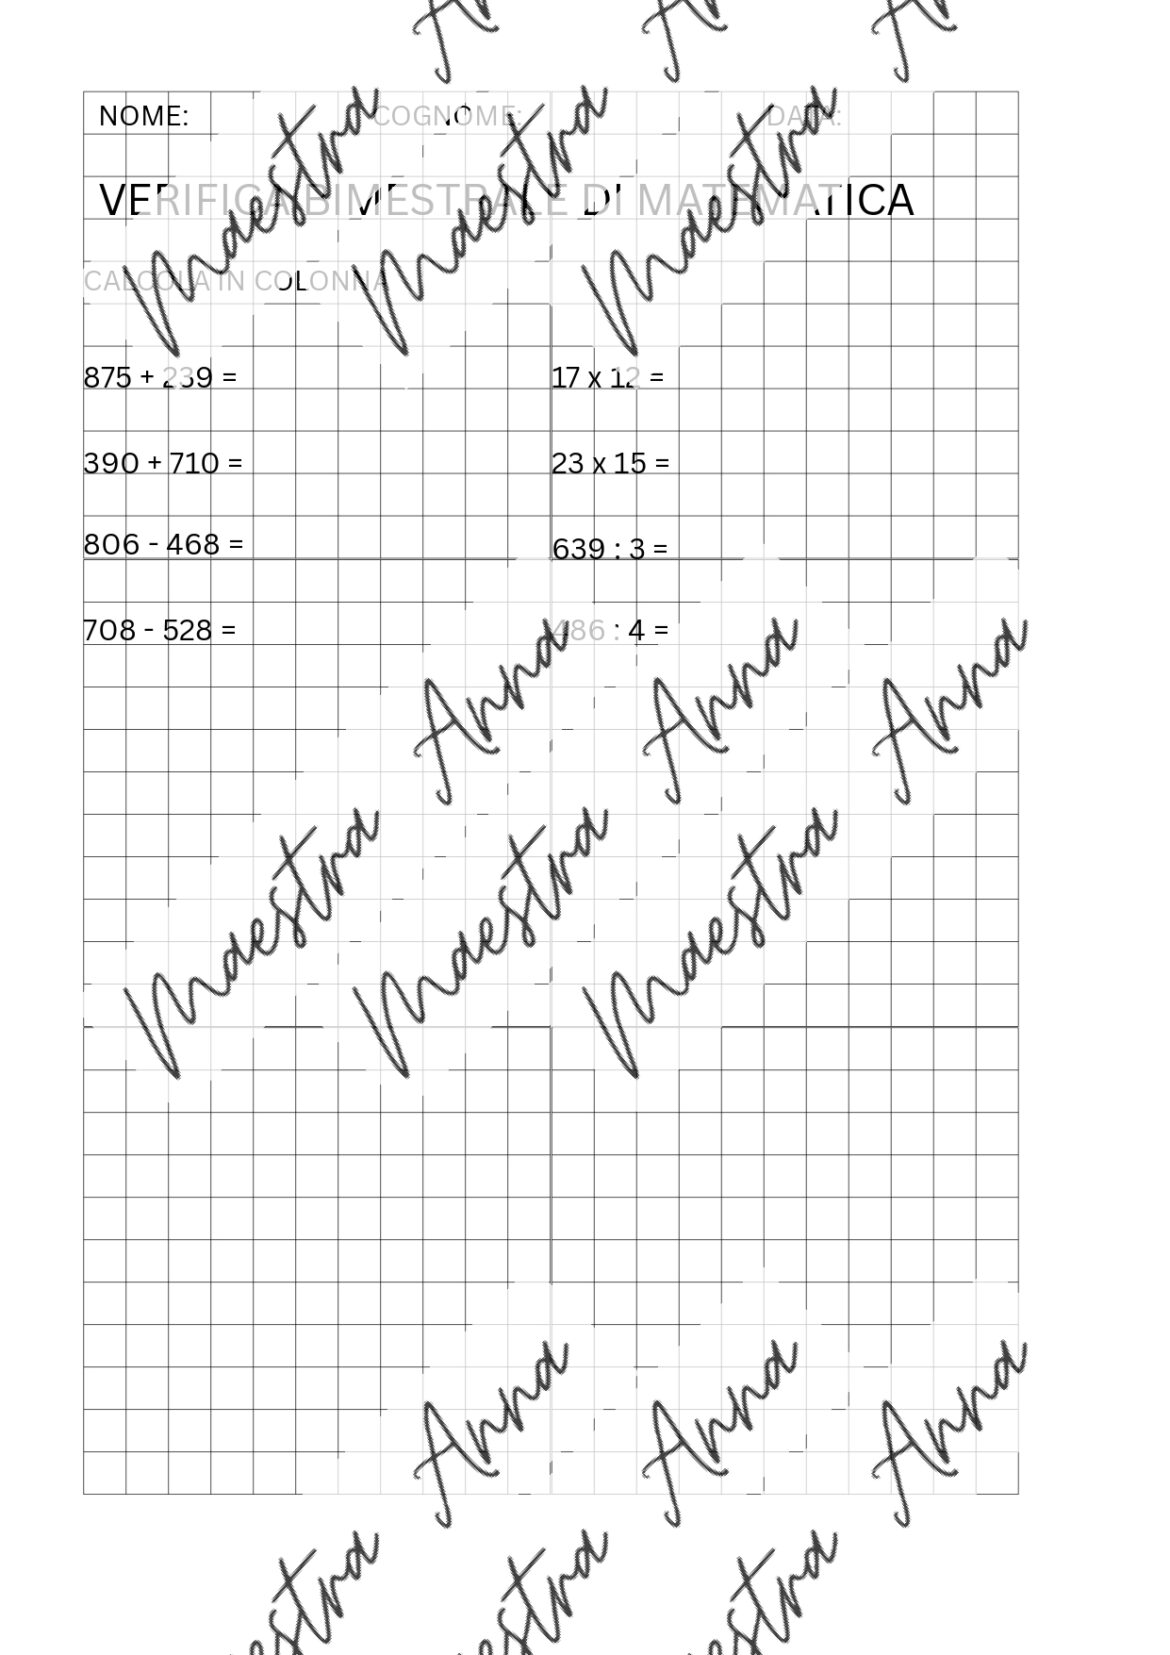 NOME: COGNOME: DATA:
VERIFICA BIMESTRALE DI MATEMATICA
CALCOLA IN COLONNA
875 + 239 = 17 x 12 =
390 + 710 = 23 x 15 =
806 - 468 = 639 : 3 =
708 - 528 = 486 : 4 =
Maestra Anna
Maestra Anna
Maestra Anna
Maestra Anna
Maestra Anna
Maestra Anna